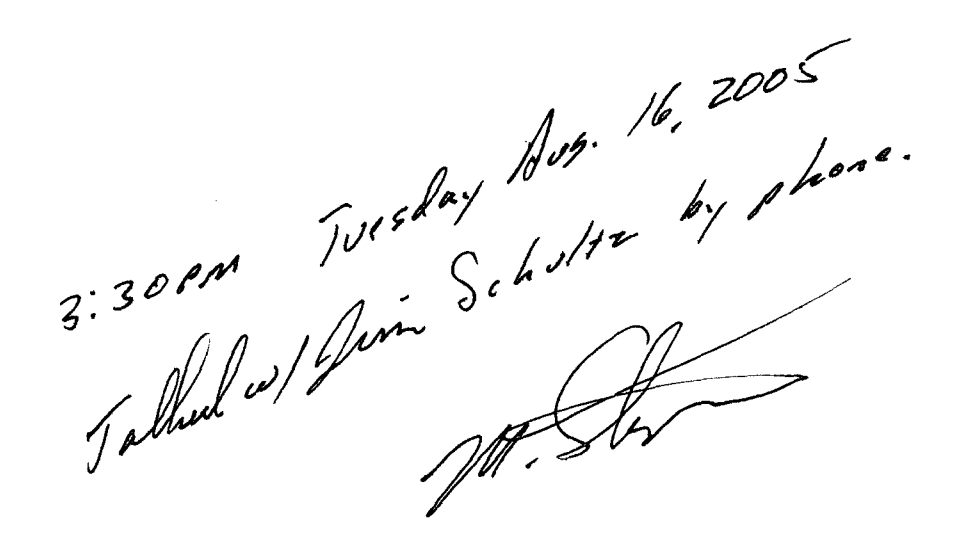 3:30PM Tuesday Aug. 16, 2005
Talked w/ Jim Schultz by phone.
M.